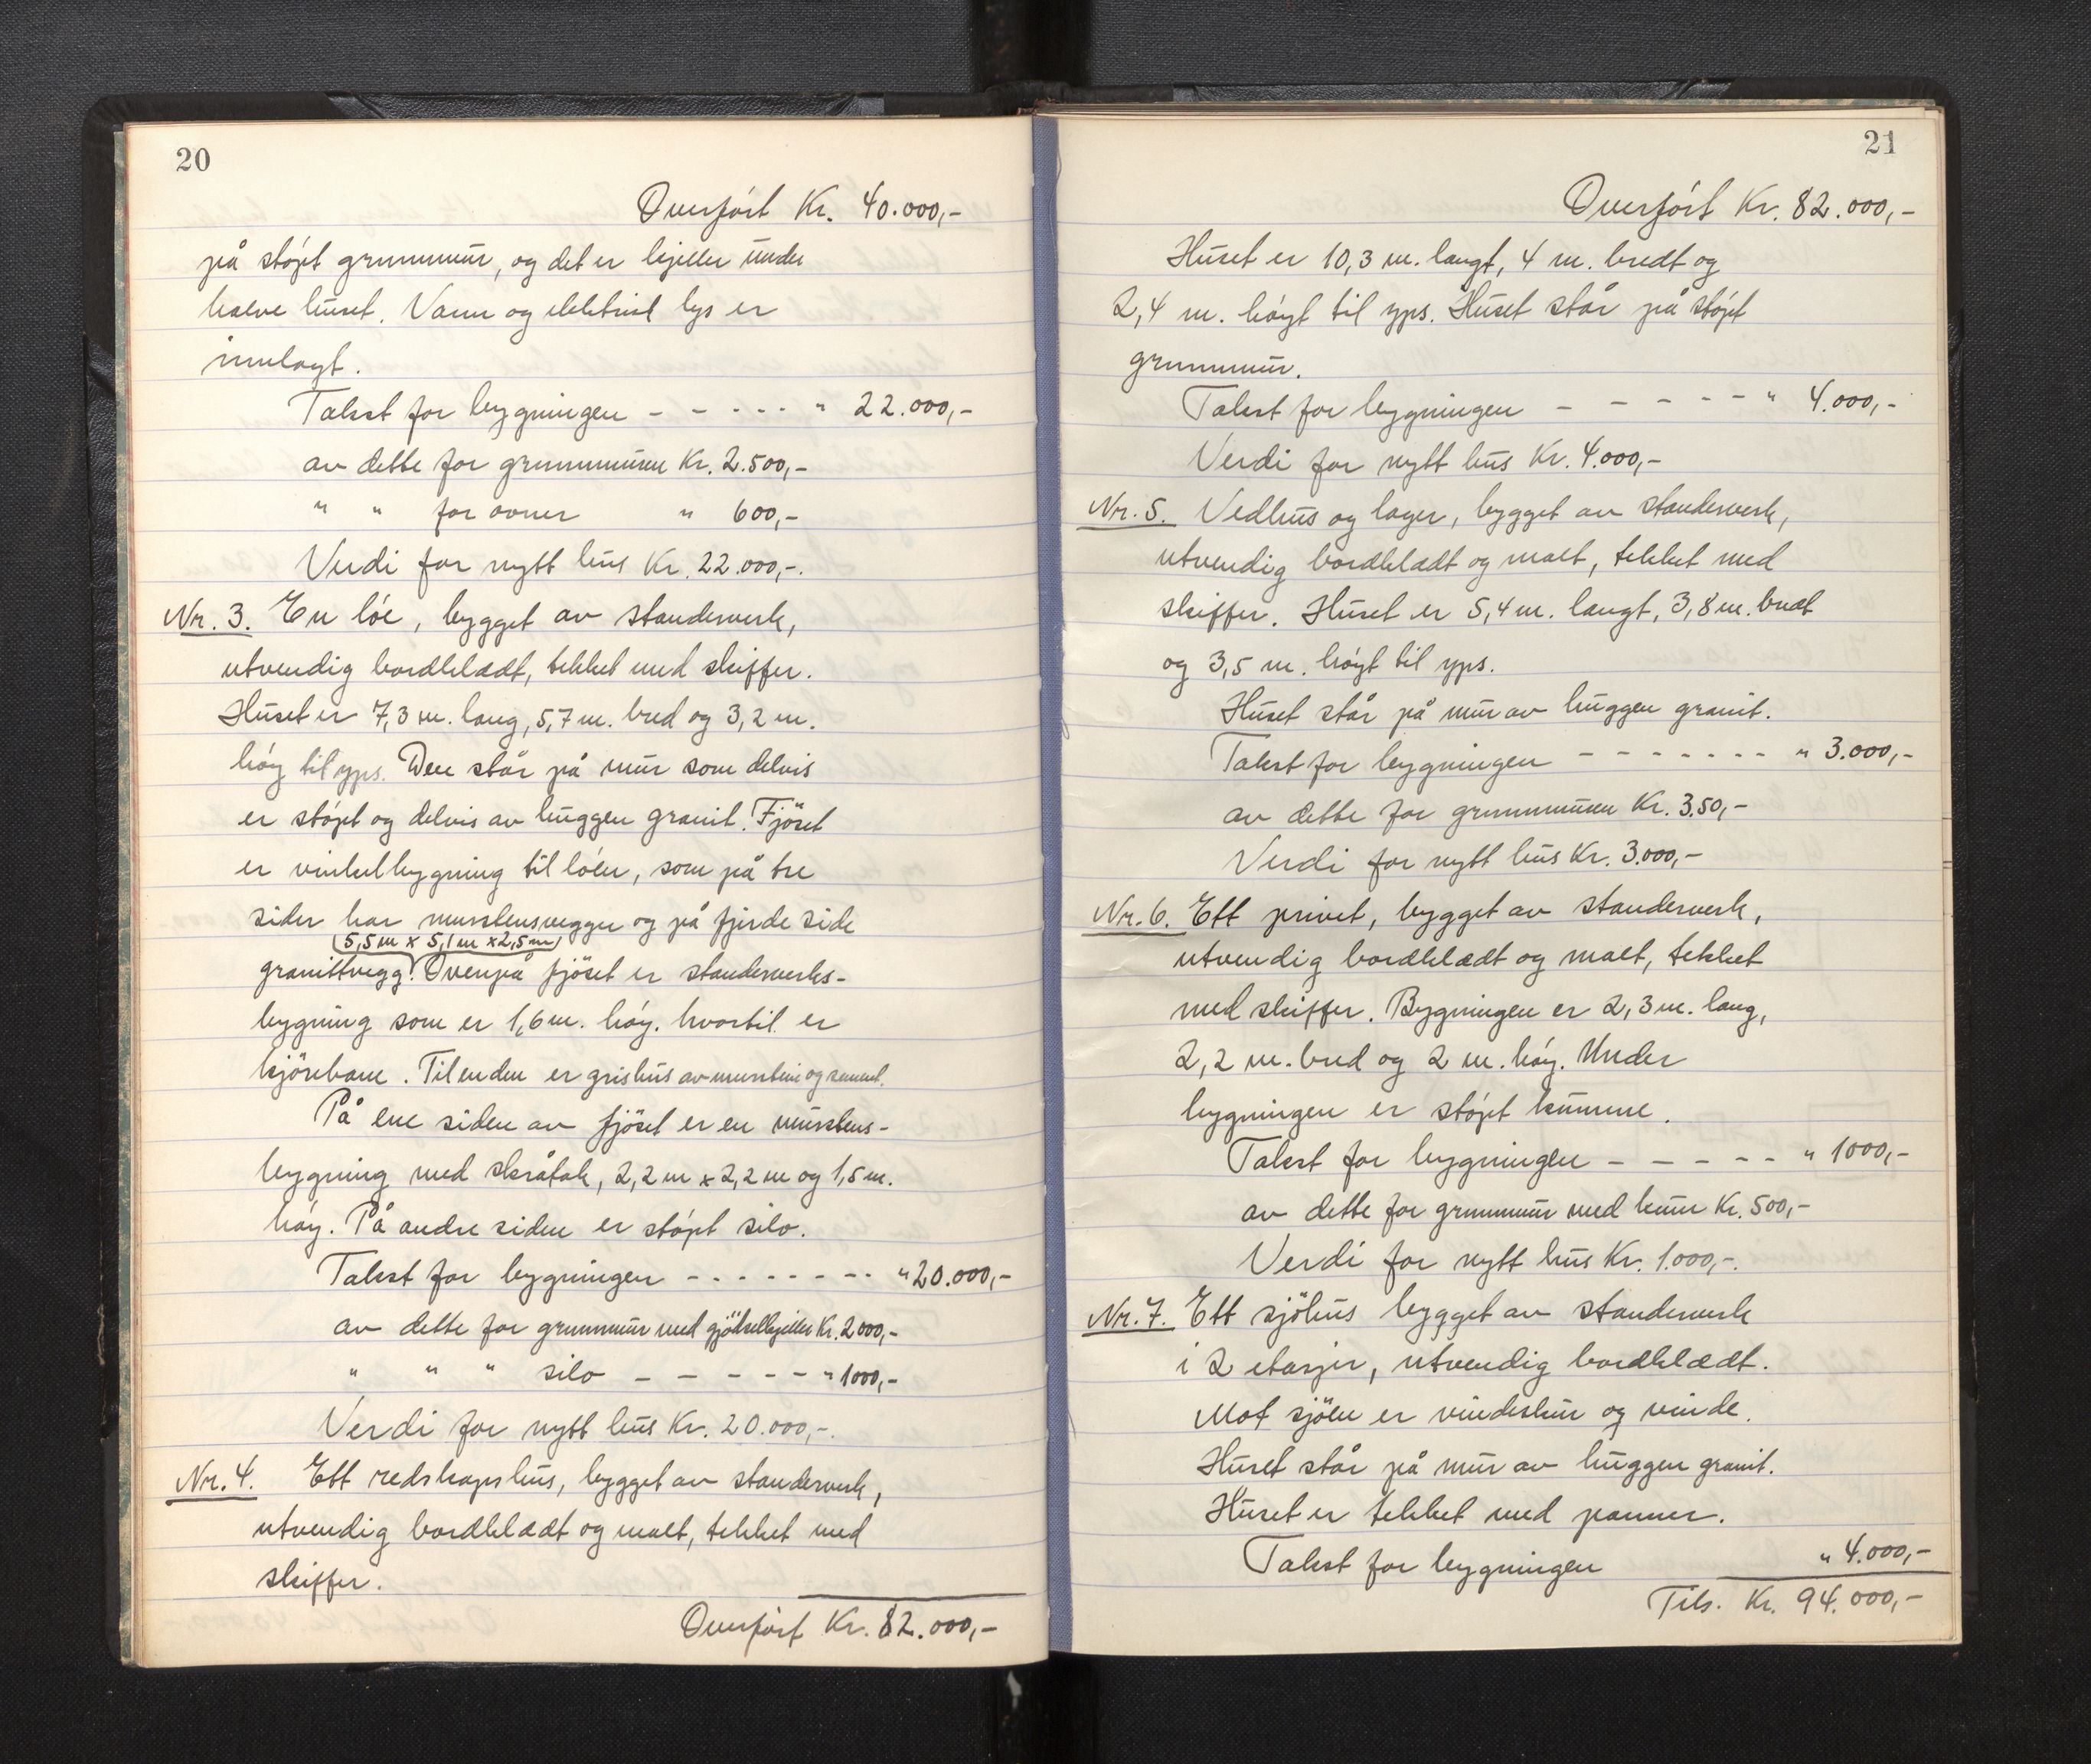 20
Overført Kr. 40.000,-
på støpt grunnmur, og det er kjeller under
halve huset. Vann og elektrisk lys er
innlagt.
Takst for bygningen - - - - - " 22.000,-
av dette for grunnmuren Kr. 2.500,-
" " for ovner " 600,-
Verdi for nytt hus Kr. 22.000,-.
Nr. 3. En løe, bygget av standerverk,
utvendig bordklædt, tekket med skiffer.
Huset er 7,3 m. lang, 5,7 m. bred og 3,2 m.
høy til yps. Den står på mur som delvis
er støpt og delvis av huggen granit. Fjöset
er vinkelbygning til løen, som på tre
sider har murstensvegger og på fjerde side
(5,5 m x 5,1 m x 2,5 m)
granittvegg. Ovenpå fjöset er standerverks-
bygning som er 1,6 m. høy. hvortil er
kjörebane. Til enden er grishus av murstein og sement.
På ene siden av fjöset er en murstens-
bygning med skråtak, 2,2 m x 2,2 m og 1,5 m.
høy. På andre siden er støpt silo.
Takst for bygningen - - - - - - - - " 20.000,-
av dette for grunnmur med gjödselkjeller Kr. 2000,-
" " " silo - - - - - " 1000,-
Verdi for nytt hus Kr. 20.000,-.
Nr. 4. Ett redskapshus, bygget av standerverk,
utvendig bordklædt og malt, tekket med
skiffer.
Overført Kr. 82.000,-
21
Overført Kr. 82.000,-
Huset er 10,3 m. langt, 4 m. bredt og
2,4 m. høyt til yps. Huset står på støpt
grunnmur.
Takst for bygningen - - - - - " 4.000,-
Verdi for nytt hus Kr. 4.000,-
Nr. 5. Vedhus og lager, bygget av standerverk,
utvendig bordklædt og malt, tekket med
skiffer. Huset er 5,4 m. langt, 3,8 m. bredt
og 3,5 m. høyt til yps.
Huset står på mur av huggen granit.
Takst for bygningen - - - - - - - " 3.000,-
av dette for grunnmuren Kr. 3.50,-
Verdi for nytt hus Kr. 3.000,-
Nr. 6. Ett privet, bygget av standerverk,
utvendig bordklædt og malt, tekket
med skiffer. Bygningen er 2,3 m. lang,
2,2 m. bred og 2 m. høy. Under
bygningen er støpt kumme.
Takst for bygningen - - - - - " 1000,-
av dette for grunnmur med kum Kr. 500,-
Verdi for nytt hus Kr. 1.000,-.
Nr. 7. Ett sjöhus bygget av standerverk
i 2 etasjer, utvendig bordklædt.
Mot sjöen er vindeskur og vinde.
Huset står på mur av huggen granit.
Huset er tekket med panner.
Takst for bygningen " 4.000,-
Tils. Kr. 94.000,-